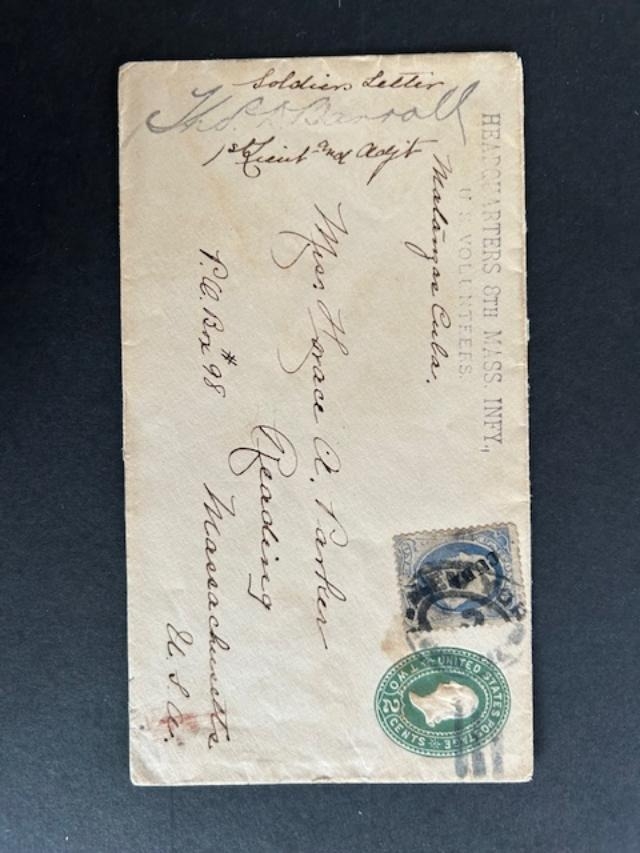 Soldiers Letter
Thos. D Barroll
1st Lieut and Adjt
HEADQUARTERS 8TH MASS. INFY.,
U. S. VOLUNTEERS.
Matanzas Cuba.
Mrs. Horace A. Parker
Reading
P.O. Box # 98
Massachusetts
U. S. A.
CUBA
UNITED STATES POSTAGE
TWO CENTS
2